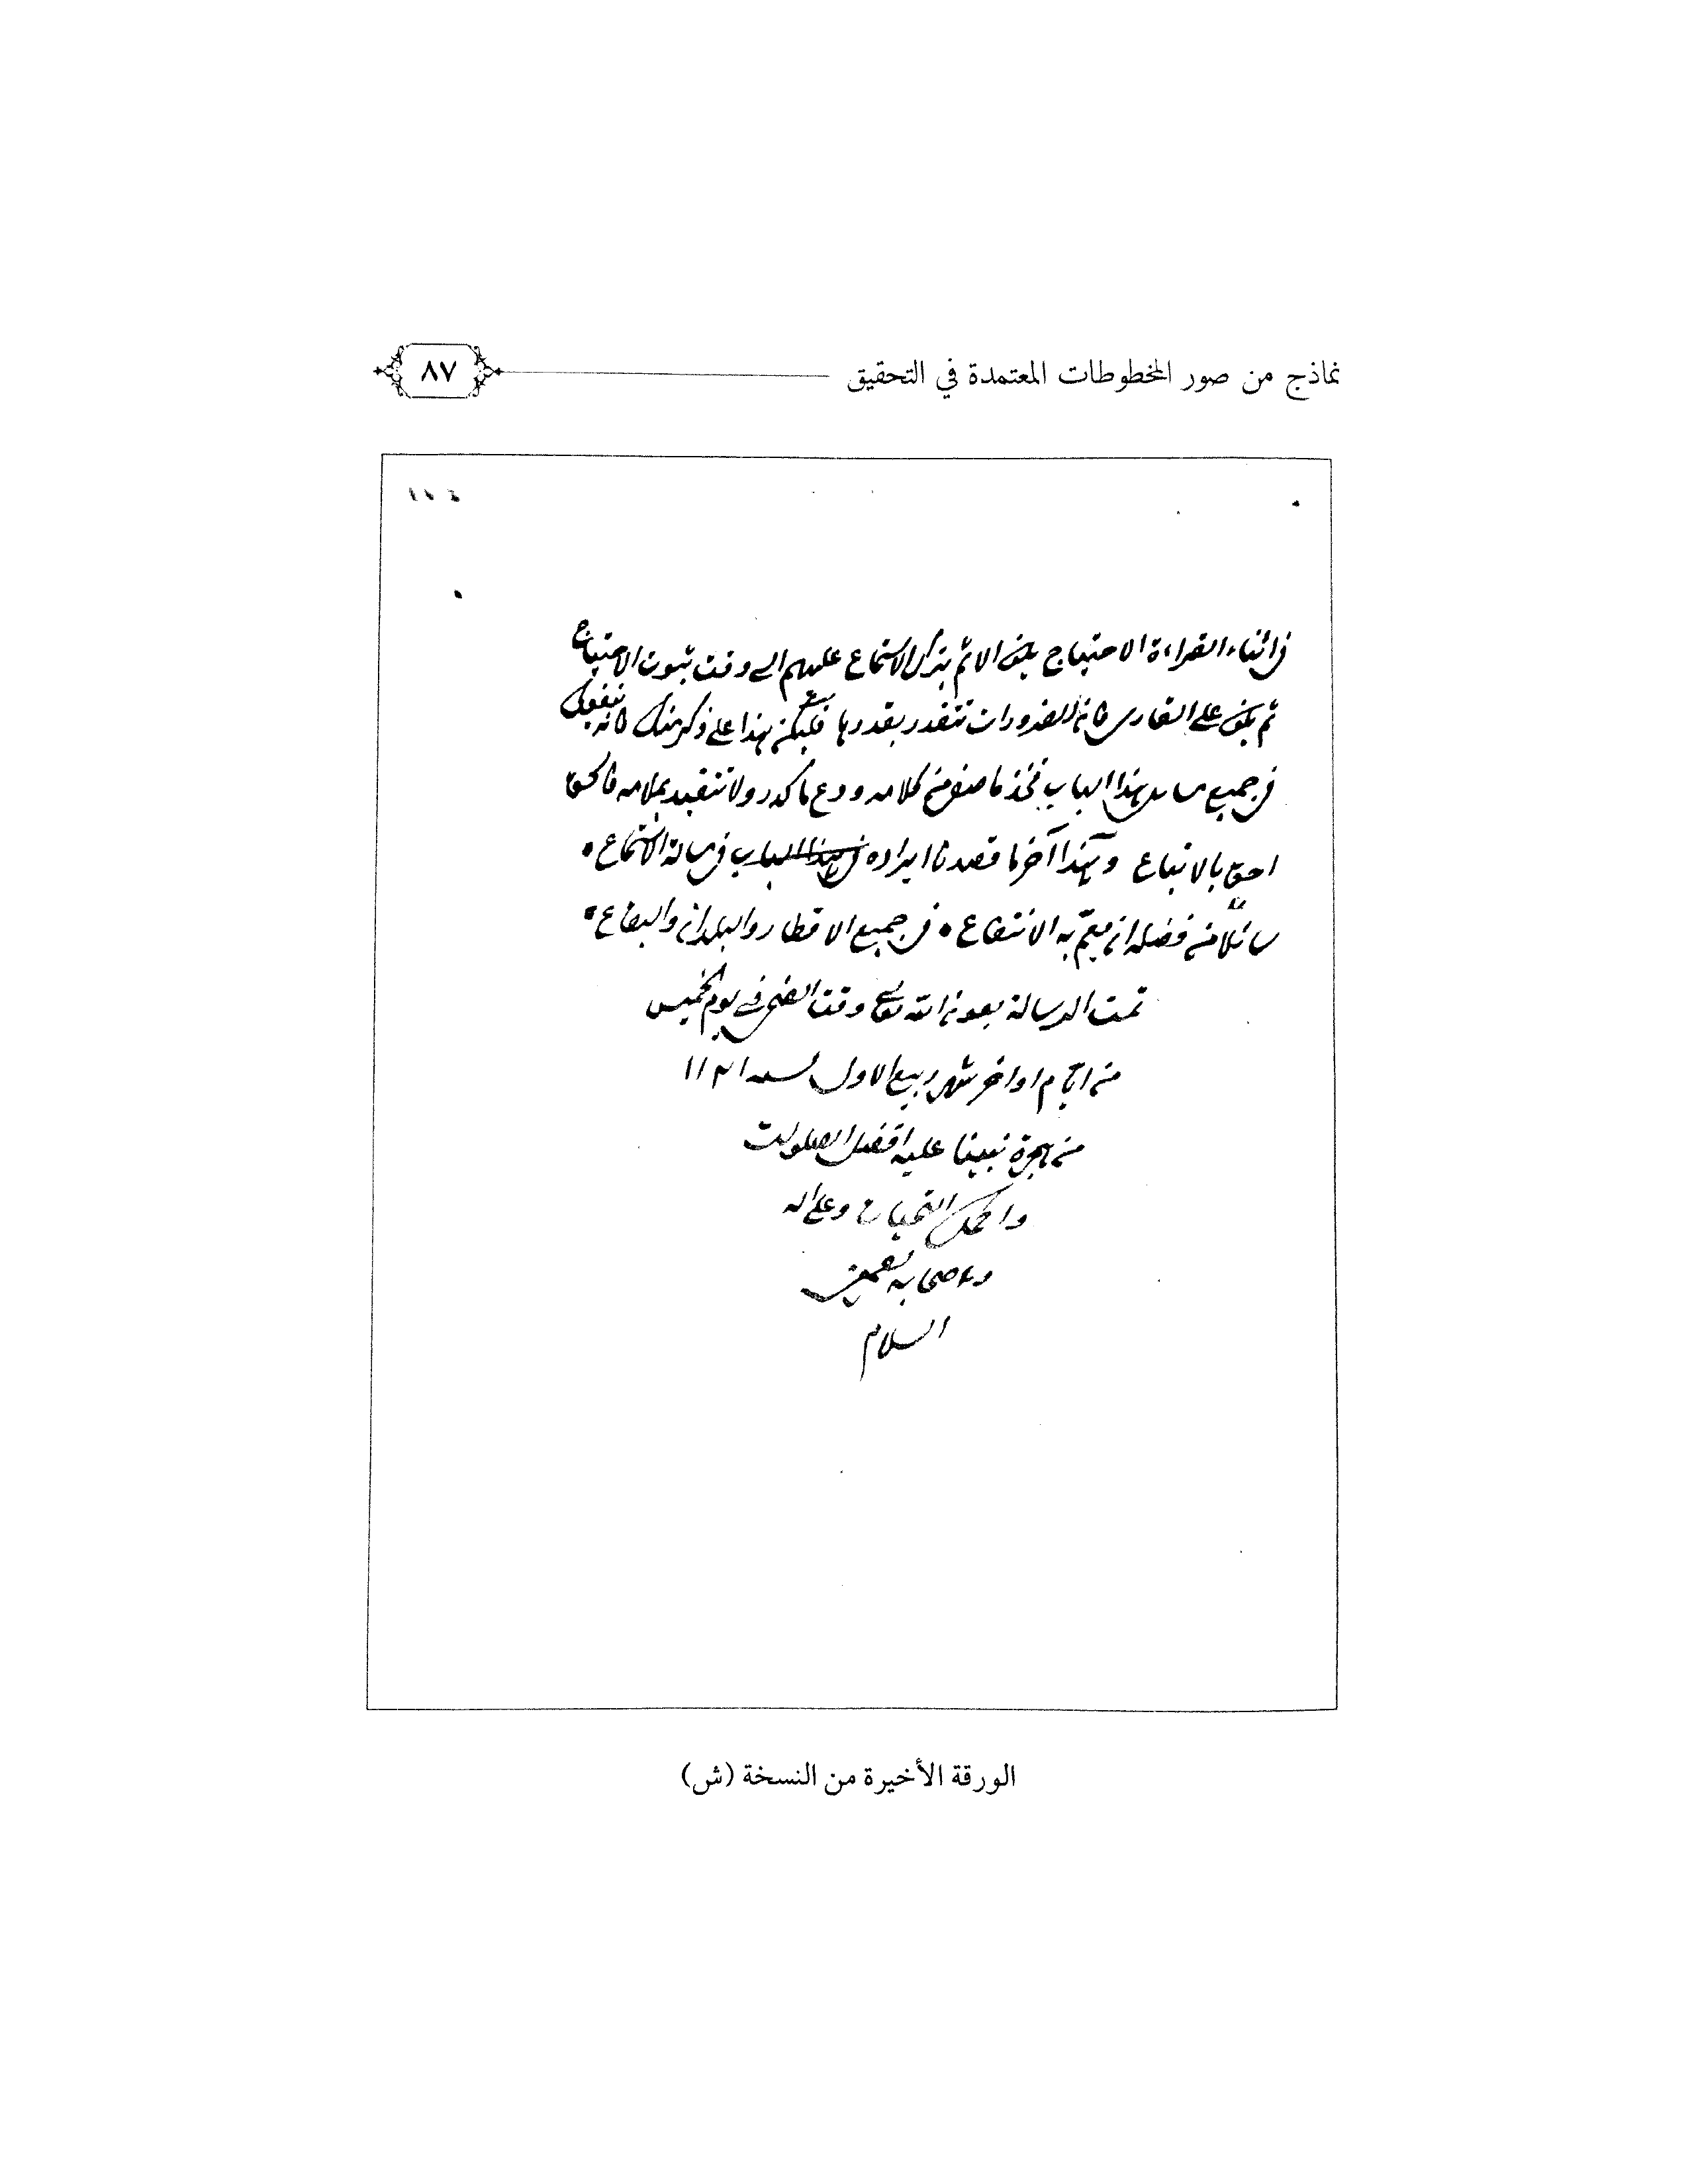 نماذج من صور المخطوطات المعتمدة في التحقيق
٨٧
في اثناء القراءة الاحتياج يكون الاثم بترك الاستماع عليهم الى وقت ثبوت الاحتياج
ثم يكون على القارى فان الضرورات تتقدر بقدرها فليكن هذا على ذكر منك فانه ينفعك
في جميع مسائل هذا الباب فخذ ما صفى من كلامه ودع ما كدر ولا تتقيد بملامه فالحق
احق بالاتباع وهذا آخر ما قصدنا ايراده في هذا الباب في مسالة الاستماع
سائلا من فضله ان يعمّ به الانتفاع في جميع الاقطار والبلدان والبقاع
تمت الرسالة بعون الله تعالى وقت الضحى في يوم الخميس
من ايّام اواخر شهر ربيع الاول لسنة ١١٢١
من هجرة نبينا عليه افضل الصلوات
واكمل التحيات وعلى اله
واصحابه
السلام
الورقة الأخيرة من النسخة (ش)